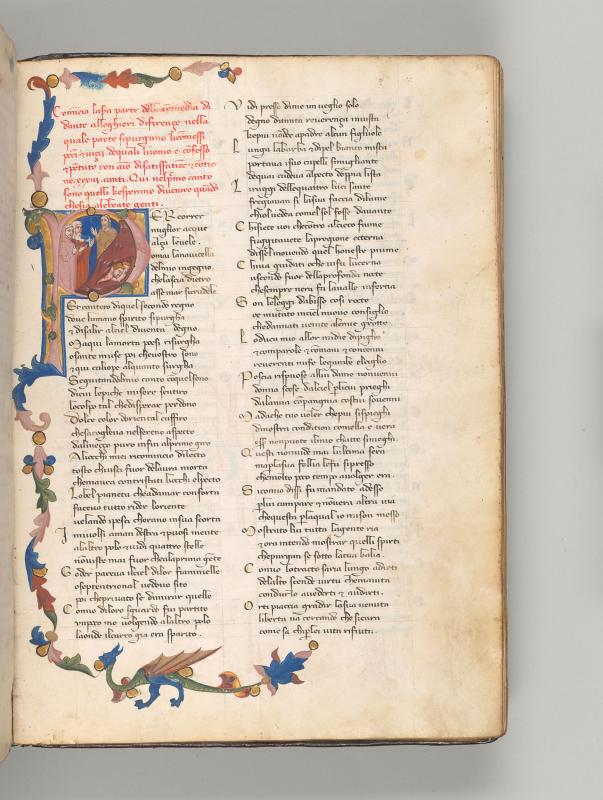 Comincia la s̄a parte della comedia di
dante alleghieri di firenze nella
quale parte si purgano li comessi
pccī & uizij. de quali luomo e cōfesso
& pētuto con aīo di satisfatiōe & cōtie
ne .xxxiij. canti. Qui nel pmo canto
sono quelli ke sperano di uenire quādo
che sia ale beate genti.
PER correr
miglior acque
alça le uele.
omai la nauicella
del mio ingegno.
che lascia dietro
asse mar si crudele
Et cantero di quel secondo regno
doue lumano spirito si purgha
& di salir al ciel diuenta degno
Ma qui la morta poesi risurgha
o sante muse poi che uostro sono
& qui caliope alquanto surgha
Seguitando il mio canto con quel sono
di cui le piche misere sentiro
lo colpo tal che disperar perdono
Dolce color doriental zaffiro
che saccoglieua nel sereno aspecto
dal mezzo puro infin al primo giro
A li occhi miei ricomincio dilecto
tosto chi usci fuor de laura morta
che mauea contristati li occhi el pecto
Lo bel pianeta che ad amar conforta
faceua tutto rider loriente
uelando i pesci cherano in sua scorta
I mi uolsi a man destra & puosi mente
a laltro polo & uidi quattro stelle
non uiste mai fuor che ala prima gēte
Goder pareua il ciel di lor fiammelle
o septentrional uedouo sito
poi che priuato se di mirar quelle
Comio di loro sguardo fui partito
un poco me uolgendo a laltro polo
la onde il carro gia era sparito.
Vidi presso di me un ueglio solo
degno di tanta reuerença in uista
che piu non de a padre alcun figliuolo
Lunga la barba & di pel bianco mista
portaua a suoi capelli simigliante
de quai cadeua al pecto doppia lista
Li raggi delle quattro luci sante
fregiauan si la sua faccia di lume
chiol uedea come l sol fosse dauante
Chi siete uoi che contro al cieco fiume
fuggit auete la pregione eterna
diss el mouendo quel honeste piume
Chi ua guidati o che ui fu lucerna
uscendo fuor della profonda nocte
che sempre nera fa la ualle inferna
Son le leggi dabisso cosi rocte
o e mutato in ciel nuouo consiglio
che dannati uenite ale mie grotte
Lo duca mio allor mi die di piglio
& con parole & con mani & con cenni
reuerenti mi fe le gambe el ciglio
Poscia rispuose a llui da me non uenni
donna scese dal ciel per li cui prieghi
dela mia compangnia costui souenni
Ma da che tuo uoler che piu si spieghi
di nostra condition comella e uera
esser non puote il mio cha te si nieghi
Questi non uide mai lultima sera
ma per la sua follia le fu si presso
che molto poco tempo a uolger era
Sicomio dissi fu mandato ad esso
per lui campare & non uera altra uia
che questa per la qual io mi son messo
Mostrato li o tutta la gente ria
& ora intendo mostrar quelli spirti
che purgan se sotto la tua balia.
Comio lo tratto saria lungo a dirti
del alto scende uirtu che maiuta
conducerlo a uederti & a udirti.
Or ti piaccia gradir la sua uenuta
liberta ua cercando che si cara
come sa chi per lei uita rifiuta.